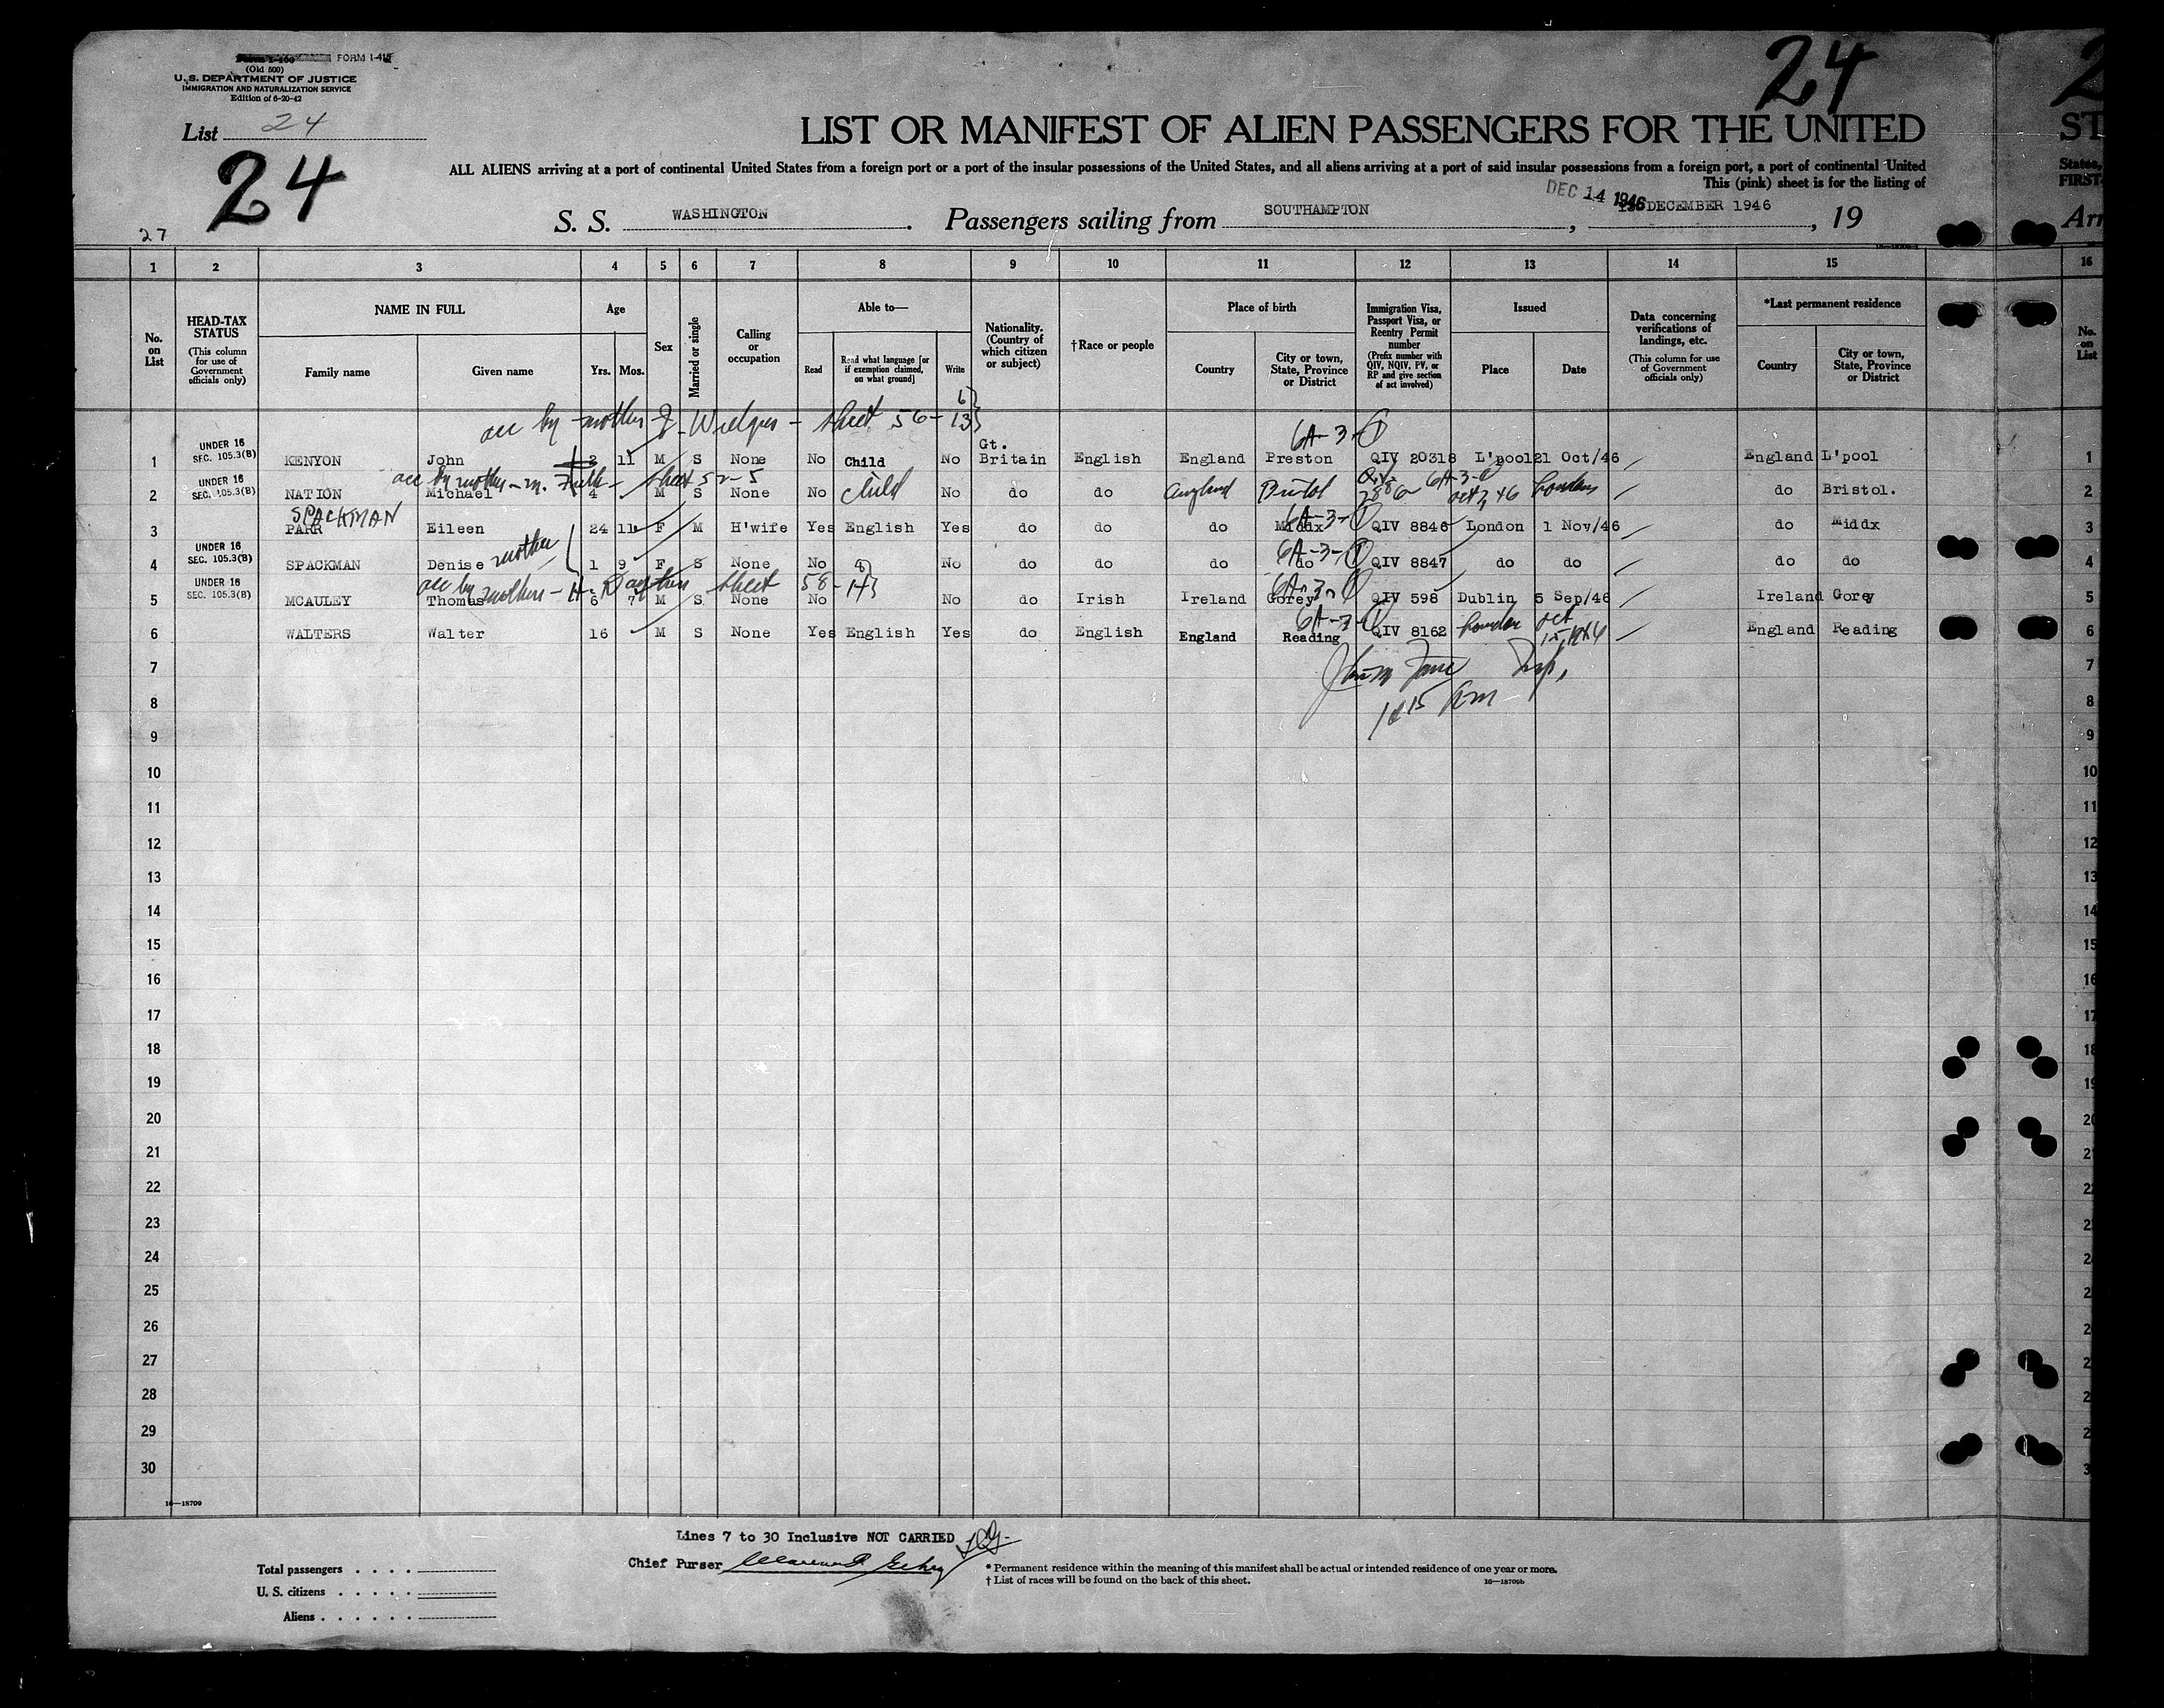 FORM I-415
(Old 500)
U.S. DEPARTMENT OF JUSTICE
IMMIGRATION AND NATURALIZATION SERVICE
Edition of 6-20-42
List 24
24
24
27
LIST OR MANIFEST OF ALIEN PASSENGERS FOR THE UNITED
ST
ALL ALIENS arriving at a port of continental United States from a foreign port or a port of the insular possessions of the United States, and all aliens arriving at a port of said insular possessions from a foreign port, a port of continental United
States,
This (pink) sheet is for the listing of
FIRST-
DEC 14 1946
S. S. WASHINGTON. Passengers sailing from SOUTHAMPTON, DECEMBER 1946, 19
Arr
1 2 3 4 5 6 7 8 9 10 11 12 13 14 15 16
No. on List
HEAD-TAX STATUS
(This column for use of Government officials only)
NAME IN FULL
Family name
Given name
Age
Yrs. Mos.
Sex
Married or single
Calling or occupation
Able to—
Read
Read what language [or if exemption claimed, on what ground]
Write
Nationality. (Country of which citizen or subject)
†Race or people
Place of birth
Country
City or town, State, Province or District
Immigration Visa, Passport Visa, or Reentry Permit number
(Prefix number with QIV, NQIV, PV, or RP and give section of act involved)
Issued
Place
Date
Data concerning verifications of landings, etc.
(This column for use of Government officials only)
*Last permanent residence
Country
City or town, State, Province or District
No. on List
acc by mother J. - sheet 56-13
6
6A-3-
UNDER 16
SEC. 105.3(B)
1 KENYON John 2 11 M S None No Child No Gt. Britain English England Preston QIV 20318 L'pool 21 Oct/46 England L'pool 1
acc by mother - M. - sheet 52-5
6A-3-
UNDER 16
SEC. 105.3(B)
2 NATION Michael 4 M S None No child No do do England Bristol QIV Oct 2, 46 London do Bristol. 2
SPACKMAN
6A-3-
3 PARR Eileen 24 11 F M H'wife Yes English Yes do do do Middx QIV 8846 London 1 Nov/46 do Middx 3
mother
6A-3-
UNDER 16
SEC. 105.3(B)
4 SPACKMAN Denise 1 9 F S None No No do do do do QIV 8847 do do do do 4
acc by mother - H. sheet 58-14
6A-3-
UNDER 16
SEC. 105.3(B)
5 MCAULEY Thomas 6 7 M S None No No do Irish Ireland Gorey QIV 598 Dublin 5 Sep/46 Ireland Gorey 5
6A-3-
6 WALTERS Walter 16 M S None Yes English Yes do English England Reading QIV 8162 London Oct 15, 1946 England Reading 6
7 Insp. 7
8 8
9 9
10 10
11 11
12 12
13 13
14 14
15 15
16 16
17 17
18 18
19 19
20 20
21 2
22 2
23 2
24 2
25 2
26 2
27 2
28 2
29 2
30 3
16—18709
Lines 7 to 30 Inclusive NOT CARRIED
Chief Purser
Total passengers
U. S. citizens
Aliens
* Permanent residence within the meaning of this manifest shall be actual or intended residence of one year or more.
† List of races will be found on the back of this sheet.
16—18709b